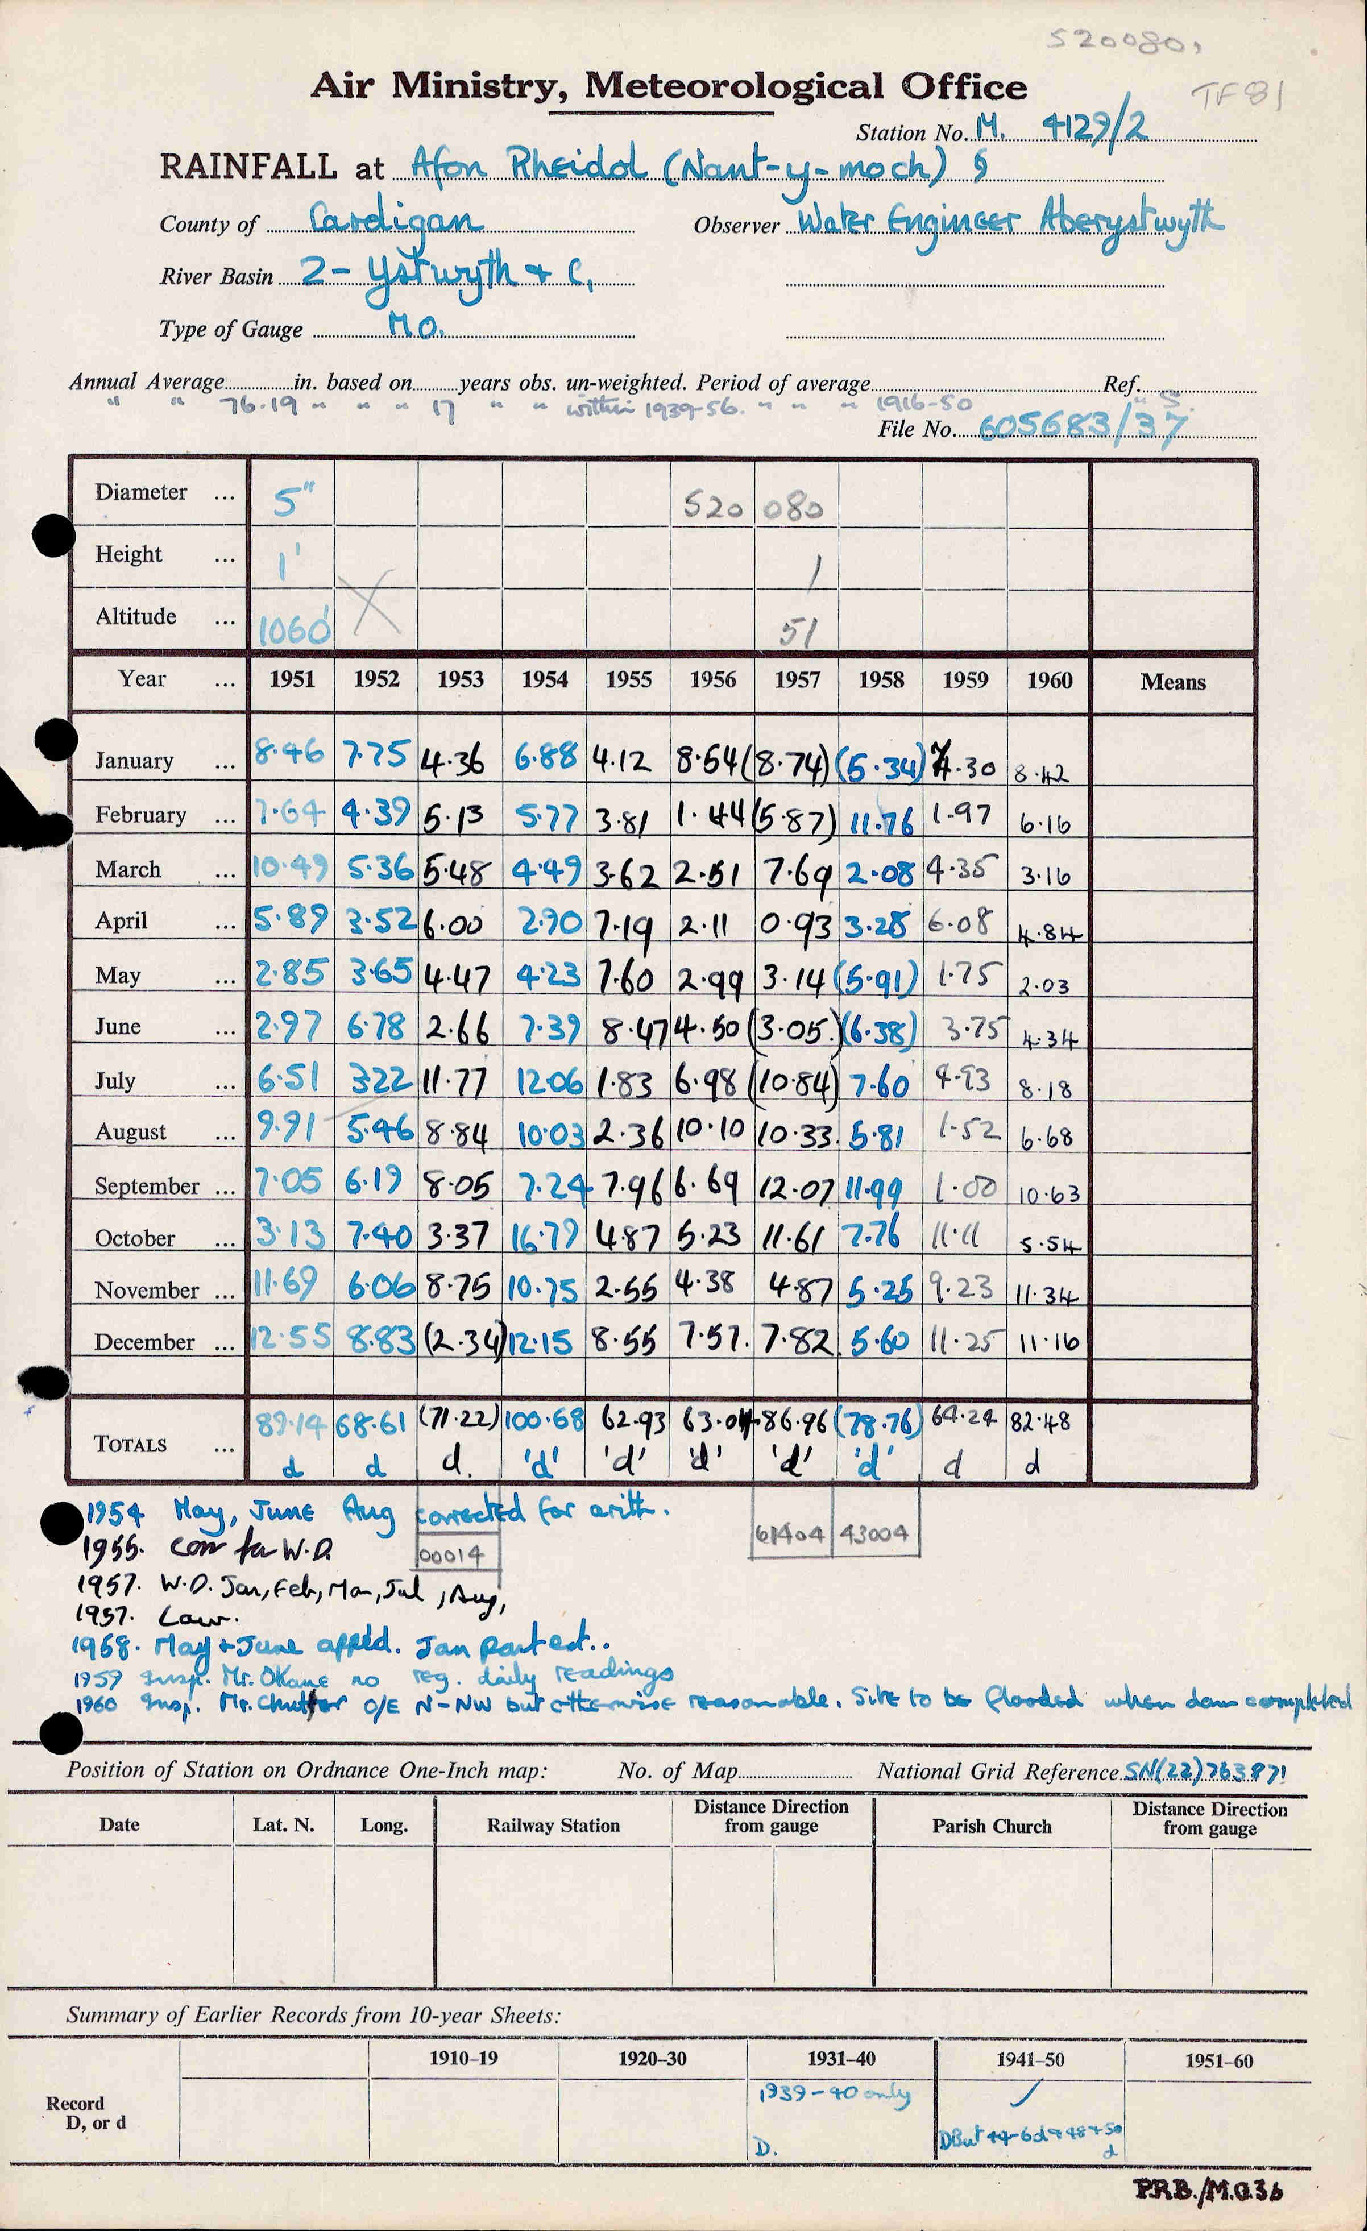 520080,
Air Ministry, Meteorological Office
TF81
Station No. M. 4129/2
RAINFALL at Afon Rheidol (Nant-y-moch) §
County of Cardigan Observer Water Engineer Aberystwyth
River Basin 2- Ystwyth + C,
Type of Gauge M.O.
Annual Average in. based on years obs. un-weighted. Period of average Ref.
" " 76.19 " " " 17 " " within 1939-56. " " " 1916-50 " S.
File No. 605683/37
Diameter ... 5" 520 080
Height ... 1' 1
Altitude ... 1060' 51
Year ... 1951 1952 1953 1954 1955 1956 1957 1958 1959 1960 Means
January ... 8.46 7.75 4.36 6.88 4.12 8.54 (8.74) (5.34) 7.30 8.42
February ... 7.64 4.39 5.13 5.77 3.81 1.44 (5.87) 11.76 1.97 6.16
March ... 10.49 5.36 5.48 4.49 3.62 2.51 7.69 2.08 4.35 3.16
April ... 5.89 3.52 6.00 2.90 7.19 2.11 0.93 3.28 6.08 4.84
May ... 2.85 3.65 4.47 4.23 7.60 2.99 3.14 (5.91) 1.75 2.03
June ... 2.97 6.78 2.66 7.39 8.47 4.50 (3.05) (6.38) 3.75 4.34
July ... 6.51 3.22 11.77 12.06 1.83 6.98 (10.84) 7.60 4.93 8.18
August ... 9.91 5.46 8.84 10.03 2.36 10.10 10.33 5.81 1.52 6.68
September ... 7.05 6.19 8.05 7.24 7.96 6.69 12.07 11.99 1.00 10.63
October ... 3.13 7.40 3.37 16.79 4.87 5.23 11.61 7.76 11.11 5.54
November ... 11.69 6.06 8.75 10.75 2.55 4.38 4.87 5.25 9.23 11.34
December ... 12.55 8.83 (2.34) 12.15 8.55 7.57. 7.82 5.60 11.25 11.16
TOTALS ... 89.14 68.61 (71.22) 100.68 62.93 63.04 86.96 (78.76) 64.24 82.48
d d d. 'd' 'd' 'd' 'd' 'd' d d
1954 May, June Aug corrected for arith.
61404 43004
1955. Corr for W.D.
00014
1957. W.D. Jan, Feb, Mar, Jul, Aug,
1957. Law.
1958. May + June appld. Jan part est..
1959 Insp. Mr. OKane no reg. daily readings
1960 Insp. Mr. O/E N-NW but otherwise reasonable. Site to be flooded when dam completed
Position of Station on Ordnance One-Inch map: No. of Map National Grid Reference SN(22)763871
Date Lat. N. Long. Railway Station Distance Direction from gauge Parish Church Distance Direction from gauge
Summary of Earlier Records from 10-year Sheets:
1910-19 1920-30 1931-40 1941-50 1951-60
Record
D, or d
1939-40 only ✓
D. DBut 44-6d+48+50
d
P.R.B./M.O.36